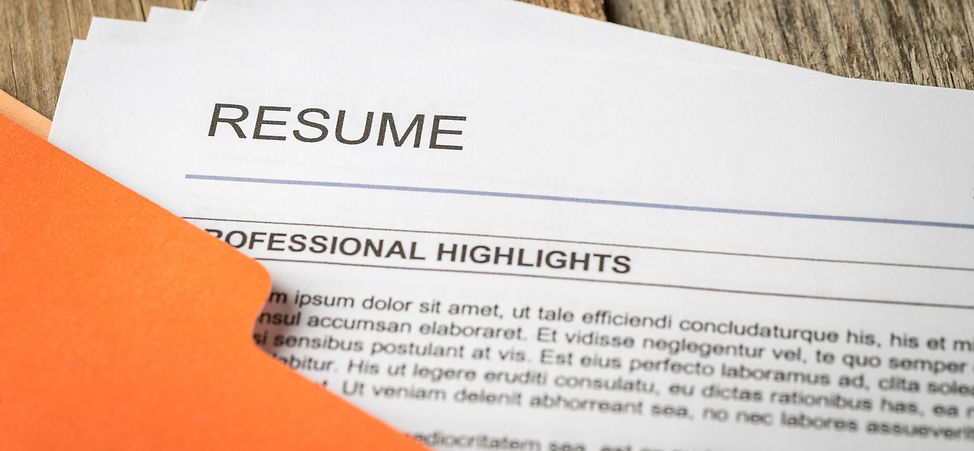 RESUME
ROFESSIONAL HIGHLIGHTS
m ipsum dolor sit amet, ut tale efficiendi concludaturque his, his et
nsul accumsan elaboraret. Et vidisse neglegentur vel, te quo semper
si sensibus postulant at vis. Est eius perfecto laboramus ad, clita
abitur. His ut legere eruditi consulatu, eu dictas rationibus has, ea
Ut veniam delenit abhorreant sea, no nec labores assueverit
mediocritatem sea, est